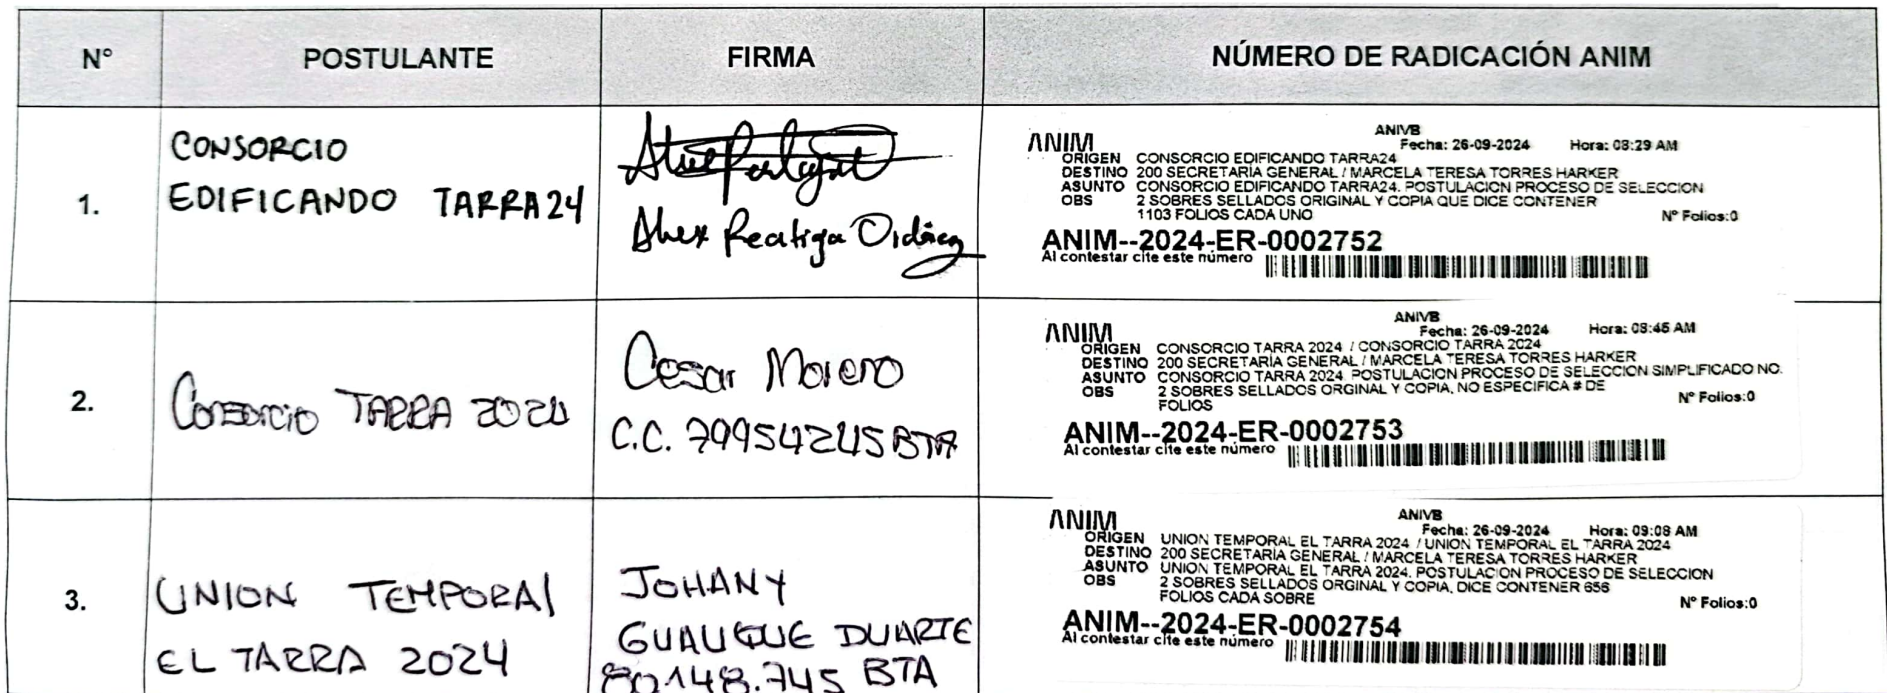 N° POSTULANTE FIRMA NÚMERO DE RADICACIÓN ANIM
1.
CONSORCIO
EDIFICANDO TARRA24
Alex Reatiga Ordóñez
ANIM
ANIVB
Fecha: 26-09-2024 Hora: 08:29 AM
ORIGEN CONSORCIO EDIFICANDO TARRA24
DESTINO 200 SECRETARIA GENERAL / MARCELA TERESA TORRES HARKER
ASUNTO CONSORCIO EDIFICANDO TARRA24. POSTULACION PROCESO DE SELECCION
OBS 2 SOBRES SELLADOS ORIGINAL Y COPIA QUE DICE CONTENER
1103 FOLIOS CADA UNO N° Folios:0
ANIM--2024-ER-0002752
Al contestar cite este número
2.
Consorcio TARRA 2024
Cesar Moreno
C.C. 79954245 BTA
ANIM
ANIVB
Fecha: 26-09-2024 Hora: 08:45 AM
ORIGEN CONSORCIO TARRA 2024 / CONSORCIO TARRA 2024
DESTINO 200 SECRETARIA GENERAL / MARCELA TERESA TORRES HARKER
ASUNTO CONSORCIO TARRA 2024. POSTULACION PROCESO DE SELECCION SIMPLIFICADO NO.
OBS 2 SOBRES SELLADOS ORGINAL Y COPIA, NO ESPECIFICA # DE
FOLIOS N° Folios:0
ANIM--2024-ER-0002753
Al contestar cite este número
3.
UNION TEMPORAl
EL TARRA 2024
JOHANY
GUAUQUE DUARTE
80148.745 BTA
ANIM
ANIVB
Fecha: 26-09-2024 Hora: 09:08 AM
ORIGEN UNION TEMPORAL EL TARRA 2024 / UNION TEMPORAL EL TARRA 2024
DESTINO 200 SECRETARIA GENERAL / MARCELA TERESA TORRES HARKER
ASUNTO UNION TEMPORAL EL TARRA 2024. POSTULACION PROCESO DE SELECCION
OBS 2 SOBRES SELLADOS ORGINAL Y COPIA, DICE CONTENER 656
FOLIOS CADA SOBRE N° Folios:0
ANIM--2024-ER-0002754
Al contestar cite este número